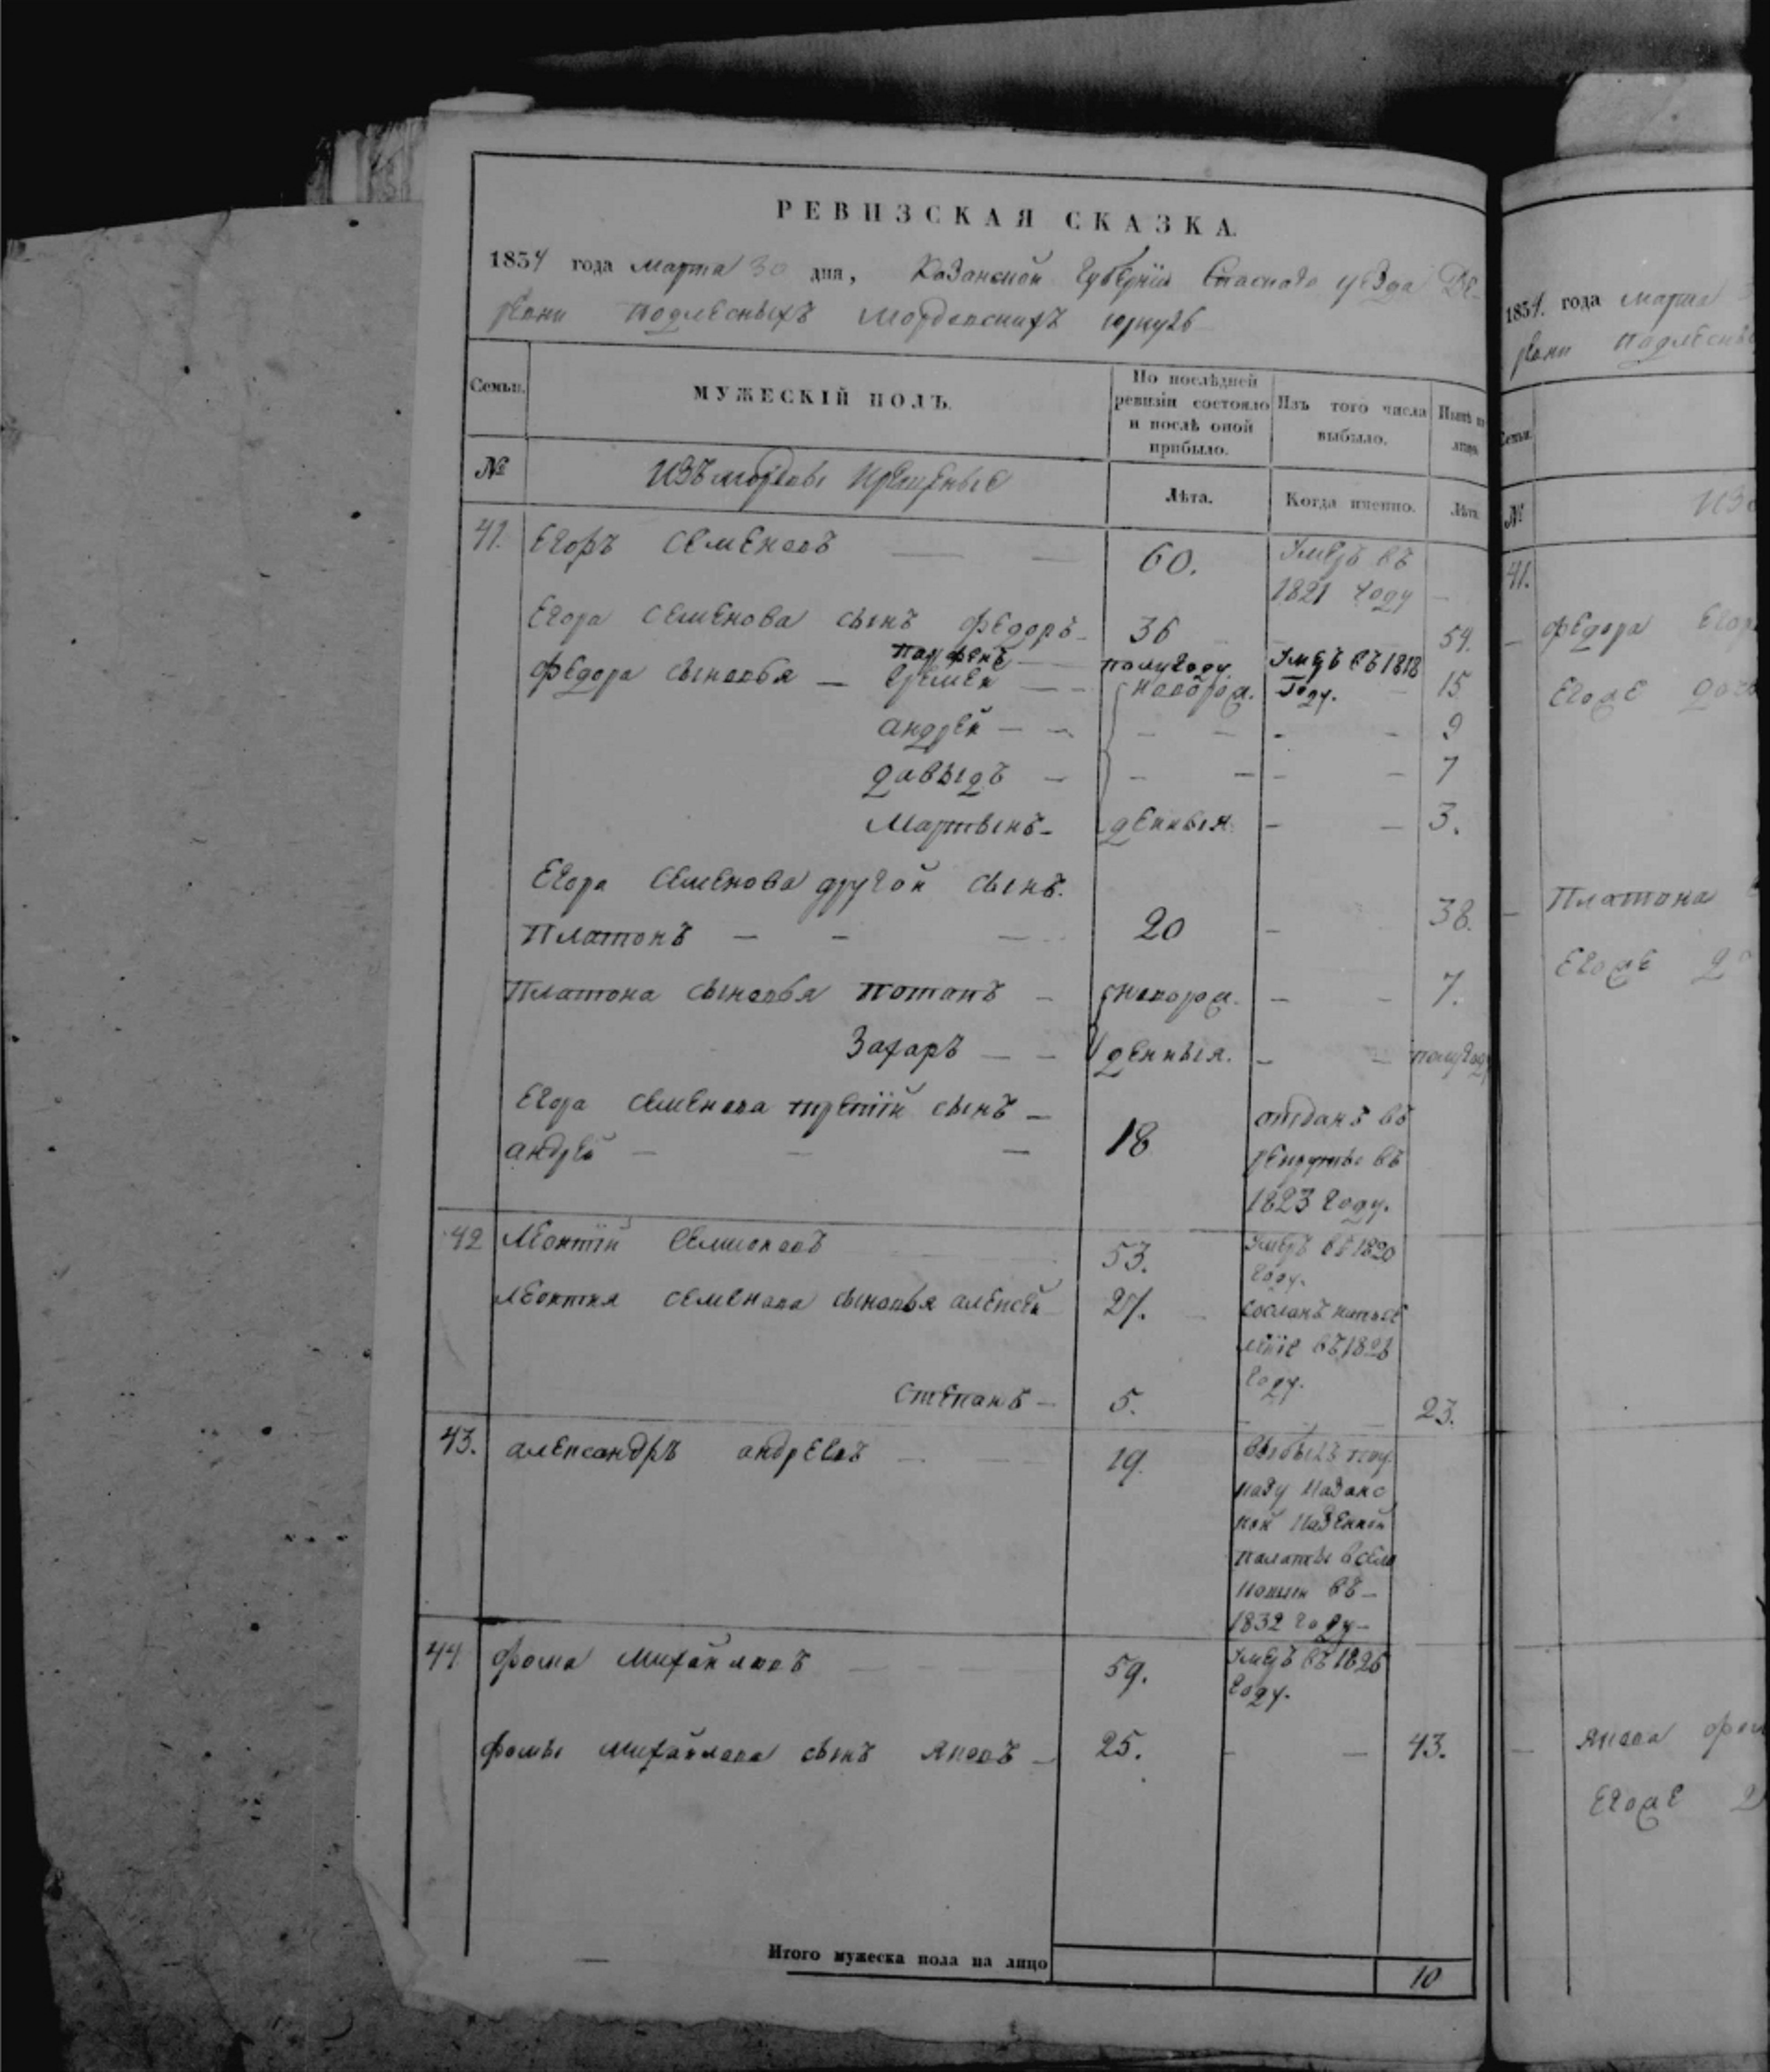 РЕВИЗСКАЯ СКАЗКА.
1834 года марта 30 дня, Казанской Губернїи Спаскаго уезда Де-
ревни Подлесныхъ Мордовскихъ юркулъ
Семьи. МУЖЕСКІЙ ПОЛЪ. По послѣдней ревизіи состояло и послѣ оной прибыло. Изъ того числа выбыло. Нынѣ на лицо.
№ Изъ мордвы крещеные Лѣта. Когда именно. Лѣта
41. Егоръ Семеновъ — — 60. Умеръ въ
1821 году —
Егора Семенова сынъ Федоръ - 36 54.
Парфенъ — полугоду Умеръ въ 1818
Федора сыновья — Еремей — новорож. году. — 15
андрей — — - - - - 9
давыдъ — - — - — 7
Мартынъ - денныя. - — 3.
Егора Семенова другой сынъ.
Платонъ — - — 20 - 38.
Платона сыновья Потапъ - новорож. - - 7.
Захаръ — - денныя. - - полугоду
Егора Семенова третїй сынъ — отданъ въ
андрей — - — 18 рекруты въ
1823 году.
42 Леонтїй Семионовъ 53. Умеръ въ 1820
году.
Леонтия Семенова сыновья алексей 27. сосланъ напосе
ленїе въ 1828
году.
Степанъ - 5. - - 23.
43. александръ андреевъ — — 19. выбылъ поу
казу Казанс
кой Казенной
палаты всело
въ —
1832 году —
44 Фома Михайловъ — 59. Умеръ въ 1826
году.
Фомы Михайлова сынъ Яковъ - 25. - — 43.
Итого мужеска пола на лицо 10
1834. года марта
ревни Подлесны
Семьи.
№ Изъ
41.
- Федора Егор
Егоже доч
- Платона
Егоже
- Якова Фом
Егоже